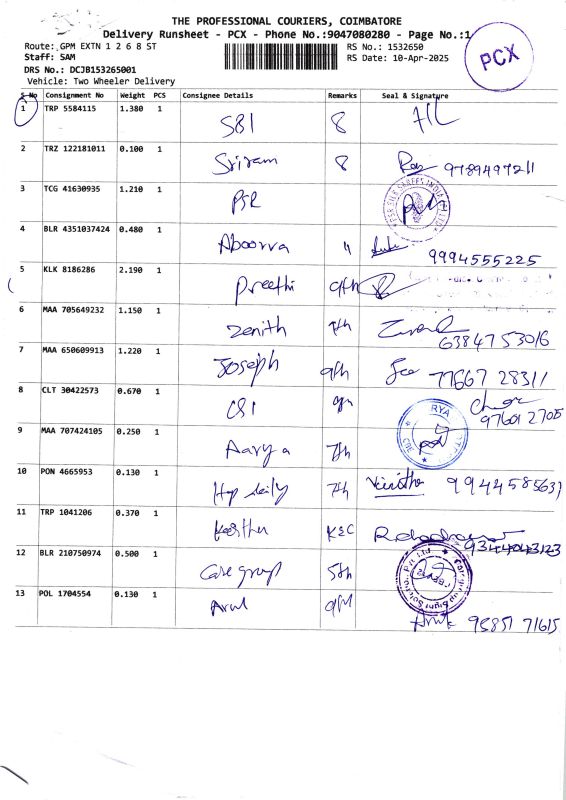 THE PROFESSIONAL COURIERS, COIMBATORE
Delivery Runsheet - PCX - Phone No.:9047080280 - Page No.:1
Route: GPM EXTN 1 2 6 8 ST
RS No.: 1532650
Staff: SAM
RS Date: 10-Apr-2025
PCX
DRS No.: DCJB153265001
Vehicle: Two Wheeler Delivery
S No Consignment No Weight PCS Consignee Details Remarks Seal & Signature
1 TRP 5584115 1.380 1 SBI 8
2 TRZ 122181011 0.100 1 Sriram 8
3 TCG 41630935 1.210 1 PSR
4 BLR 4351037424 0.480 1 Aboorva 11 9994555225
5 KLK 8186286 2.190 1 Preethi 9th
6 MAA 705649232 1.150 1 Zenith 7th 63847 53016
7 MAA 650609913 1.220 1 Joseph 9th 77667 28311
8 CLT 30422573 0.670 1 CSI
9 MAA 707424105 0.250 1 Aarya 7th RYA
10 PON 4665953 0.130 1 7th
11 TRP 1041206 0.370 1 Keerthu K&C
12 BLR 210750974 0.500 1 Care group 5th
13 POL 1704554 0.130 1 Arul 9th 95851 71615